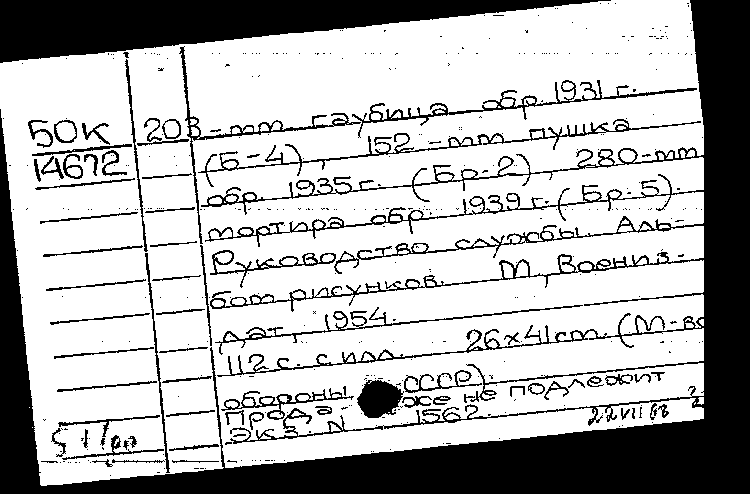 50К
14672
203-мм гаубица обр. 1931 г.
(Б-4), 152-мм пушка
обр. 1935 г. (Бр-2), 280-мм
мортира обр. 1939 г. (Бр-5).
Руководство службы. Аль-
бом рисунков. М, Воениз-
дат, 1954.
112 с. с илл. 26х41 cm. (М-во
обороны СССР).
Прода- же не подлежит
Экз. N 1562.